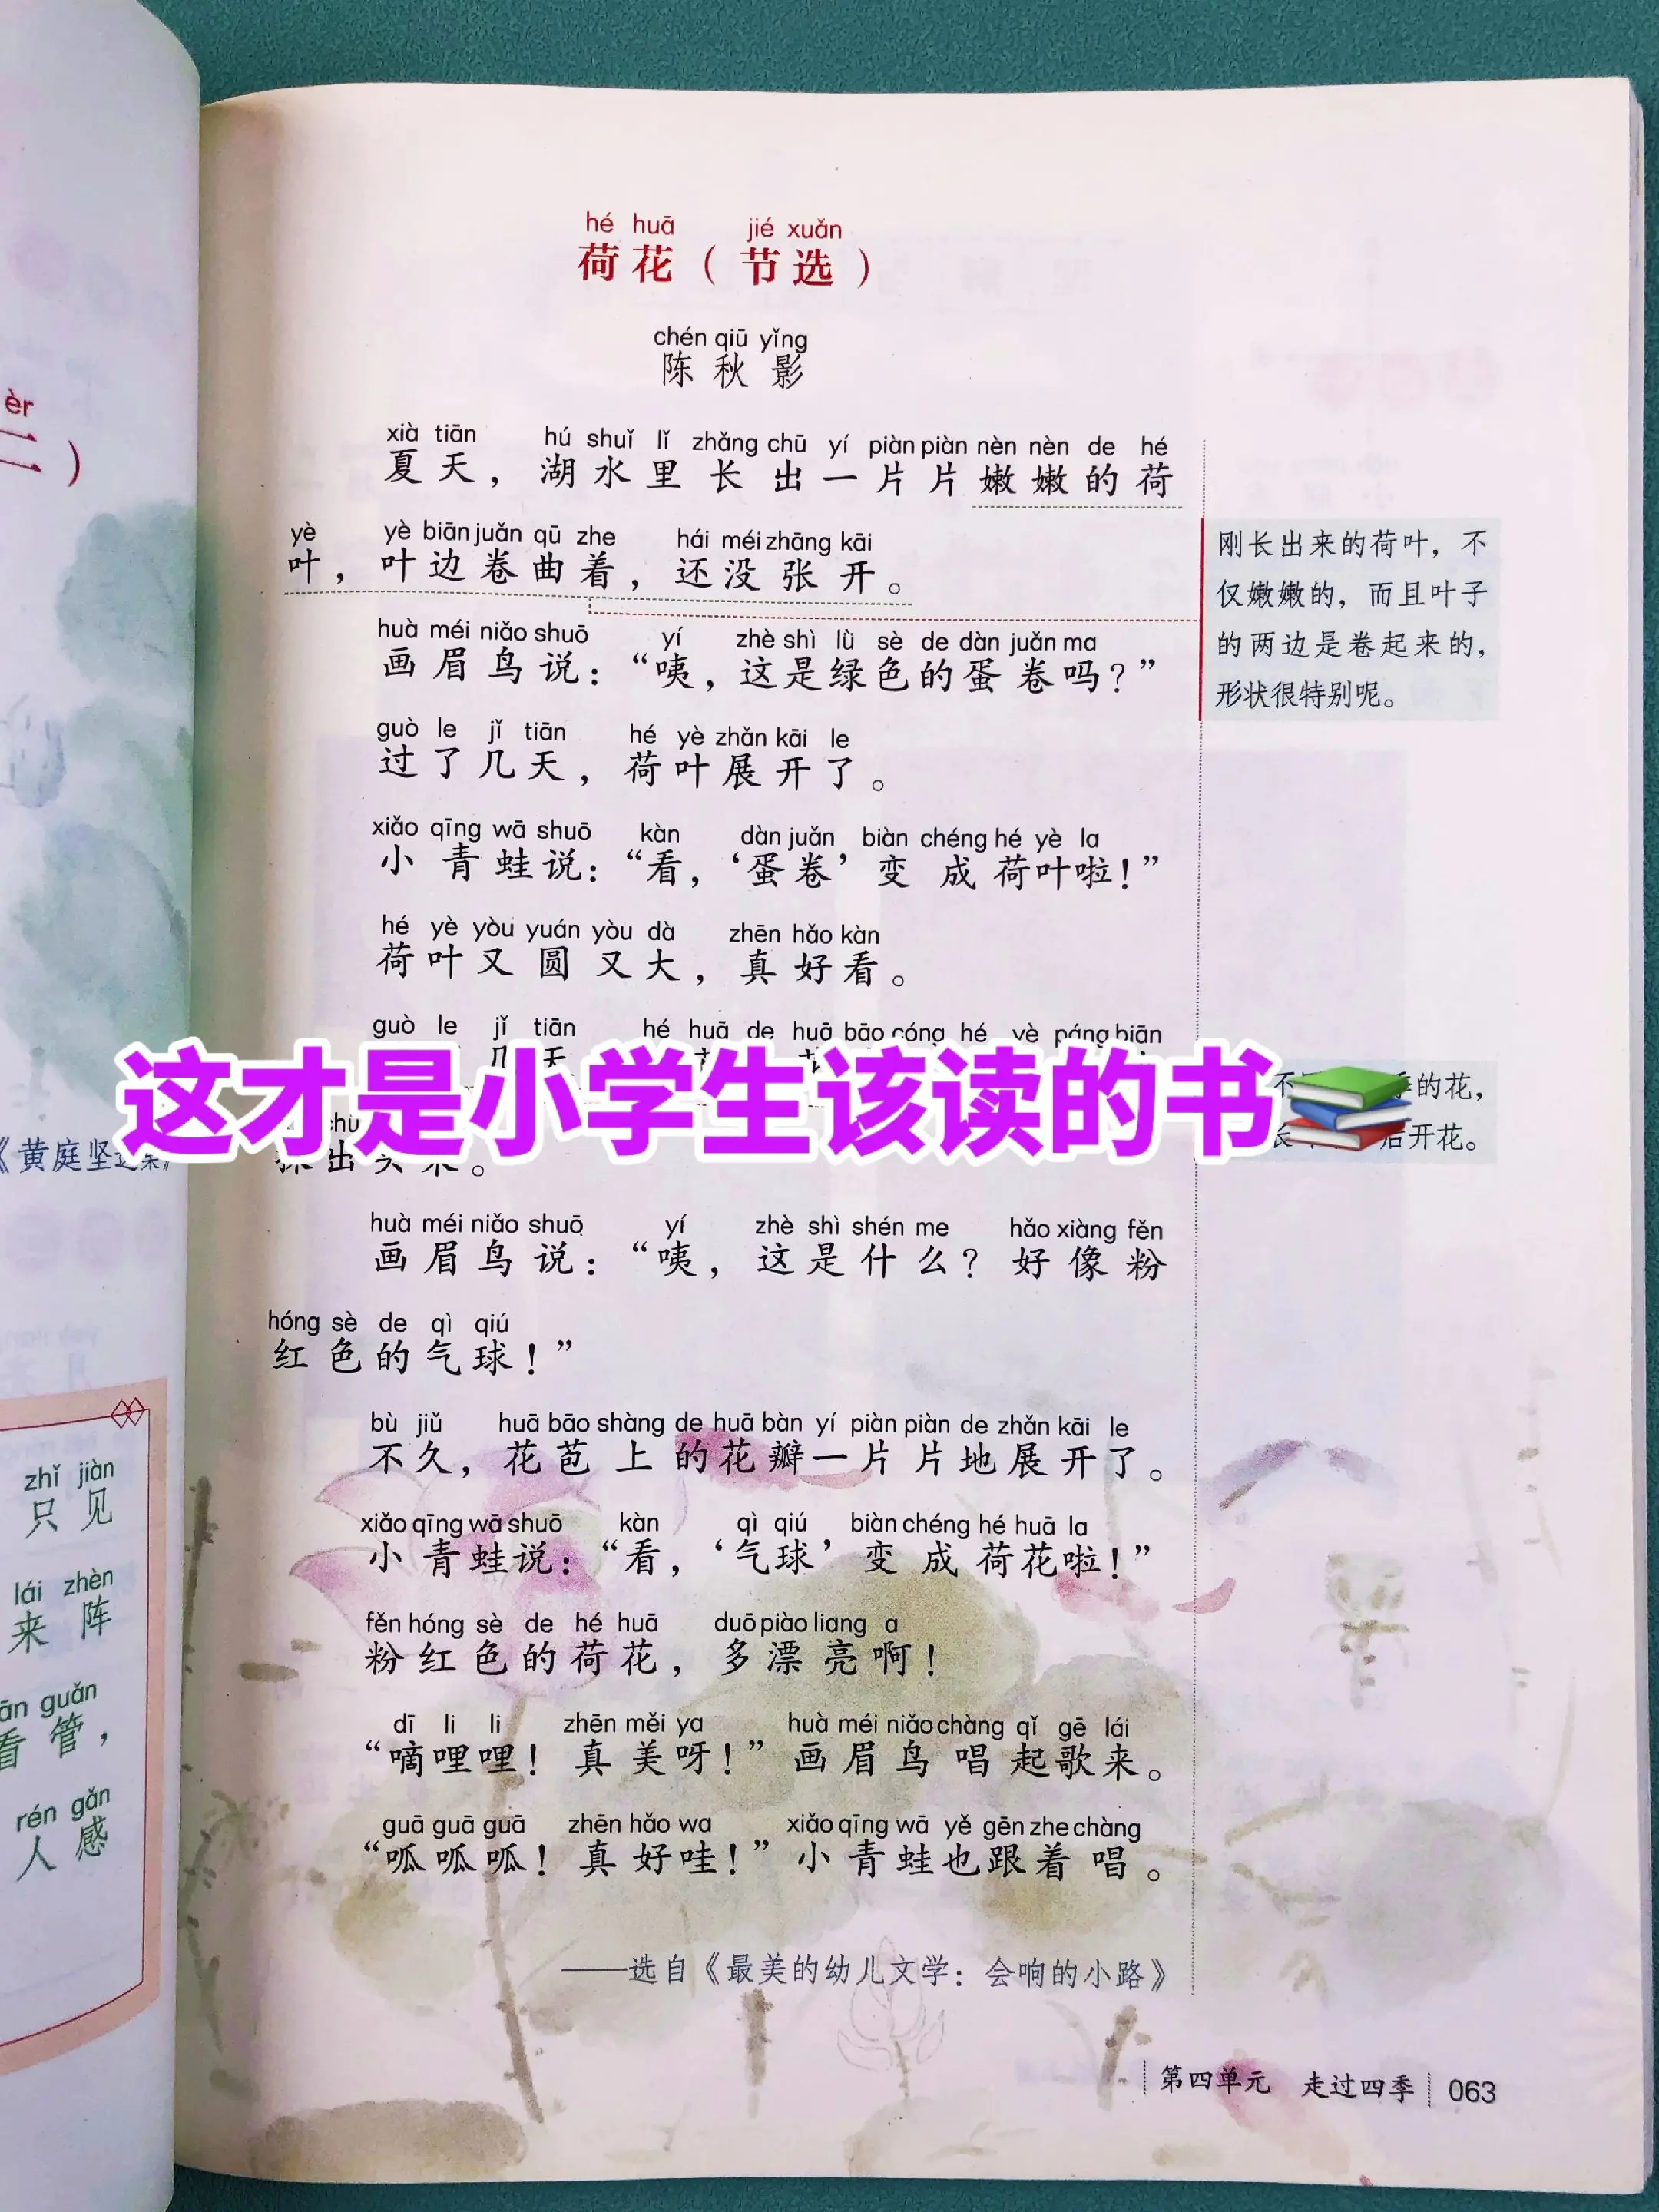 hé huā jié xuǎn
荷花（节选）
chén qiū yǐng
陈秋影
xià tiān hú shuǐ lǐ zhǎng chū yí piàn piàn nèn nèn de hé
夏天，湖水里长出一片片嫩嫩的荷
yè yè biān juǎn qū zhe hái méi zhāng kāi
叶，叶边卷曲着，还没张开。
huà méi niǎo shuō yí zhè shì lǜ sè de dàn juǎn ma
画眉鸟说：“咦，这是绿色的蛋卷吗？”
guò le jǐ tiān hé yè zhǎn kāi le
过了几天，荷叶展开了。
xiǎo qīng wā shuō kàn dàn juǎn biàn chéng hé yè la
小青蛙说：“看，‘蛋卷’变成荷叶啦！”
hé yè yòu yuán yòu dà zhēn hǎo kàn
荷叶又圆又大，真好看。
guò le jǐ tiān hé huā de huā bāo cóng hé yè páng biān
几天
这才是小学生该读的书
chū
出
huà méi niǎo shuō yí zhè shì shén me hǎo xiàng fěn
画眉鸟说：“咦，这是什么？好像粉
hóng sè de qì qiú
红色的气球！”
bù jiǔ huā bāo shàng de huā bàn yí piàn piàn de zhǎn kāi le
不久，花苞上的花瓣一片片地展开了。
xiǎo qīng wā shuō kàn qì qiú biàn chéng hé huā la
小青蛙说：“看，‘气球’变成荷花啦！”
fěn hóng sè de hé huā duō piào liang a
粉红色的荷花，多漂亮啊！
dī li li zhēn měi ya huà méi niǎo chàng qǐ gē lái
“嘀哩哩！真美呀！”画眉鸟唱起歌来。
guā guā guā zhēn hǎo wa xiǎo qīng wā yě gēn zhe chàng
“呱呱呱！真好哇！”小青蛙也跟着唱。
——选自《最美的幼儿文学：会响的小路》
刚长出来的荷叶，不
仅嫩嫩的，而且叶子
的两边是卷起来的，
形状很特别呢。
的花，
开花。
第四单元 走过四季 063
èr
二）
《黄庭坚
zhǐ jiàn
只见
lái zhèn
来阵
guǎn
看管，
rén gǎn
人感